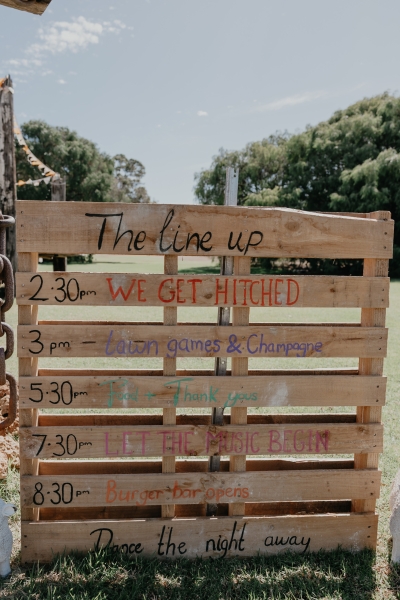 The line up
2.30pm WE GET HITCHED
3pm - Lawn games & Champagne
5.30pm Food + Thank yous
7.30pm LET THE MUSIC BEGIN
8.30pm Burger bar opens
Dance the night away